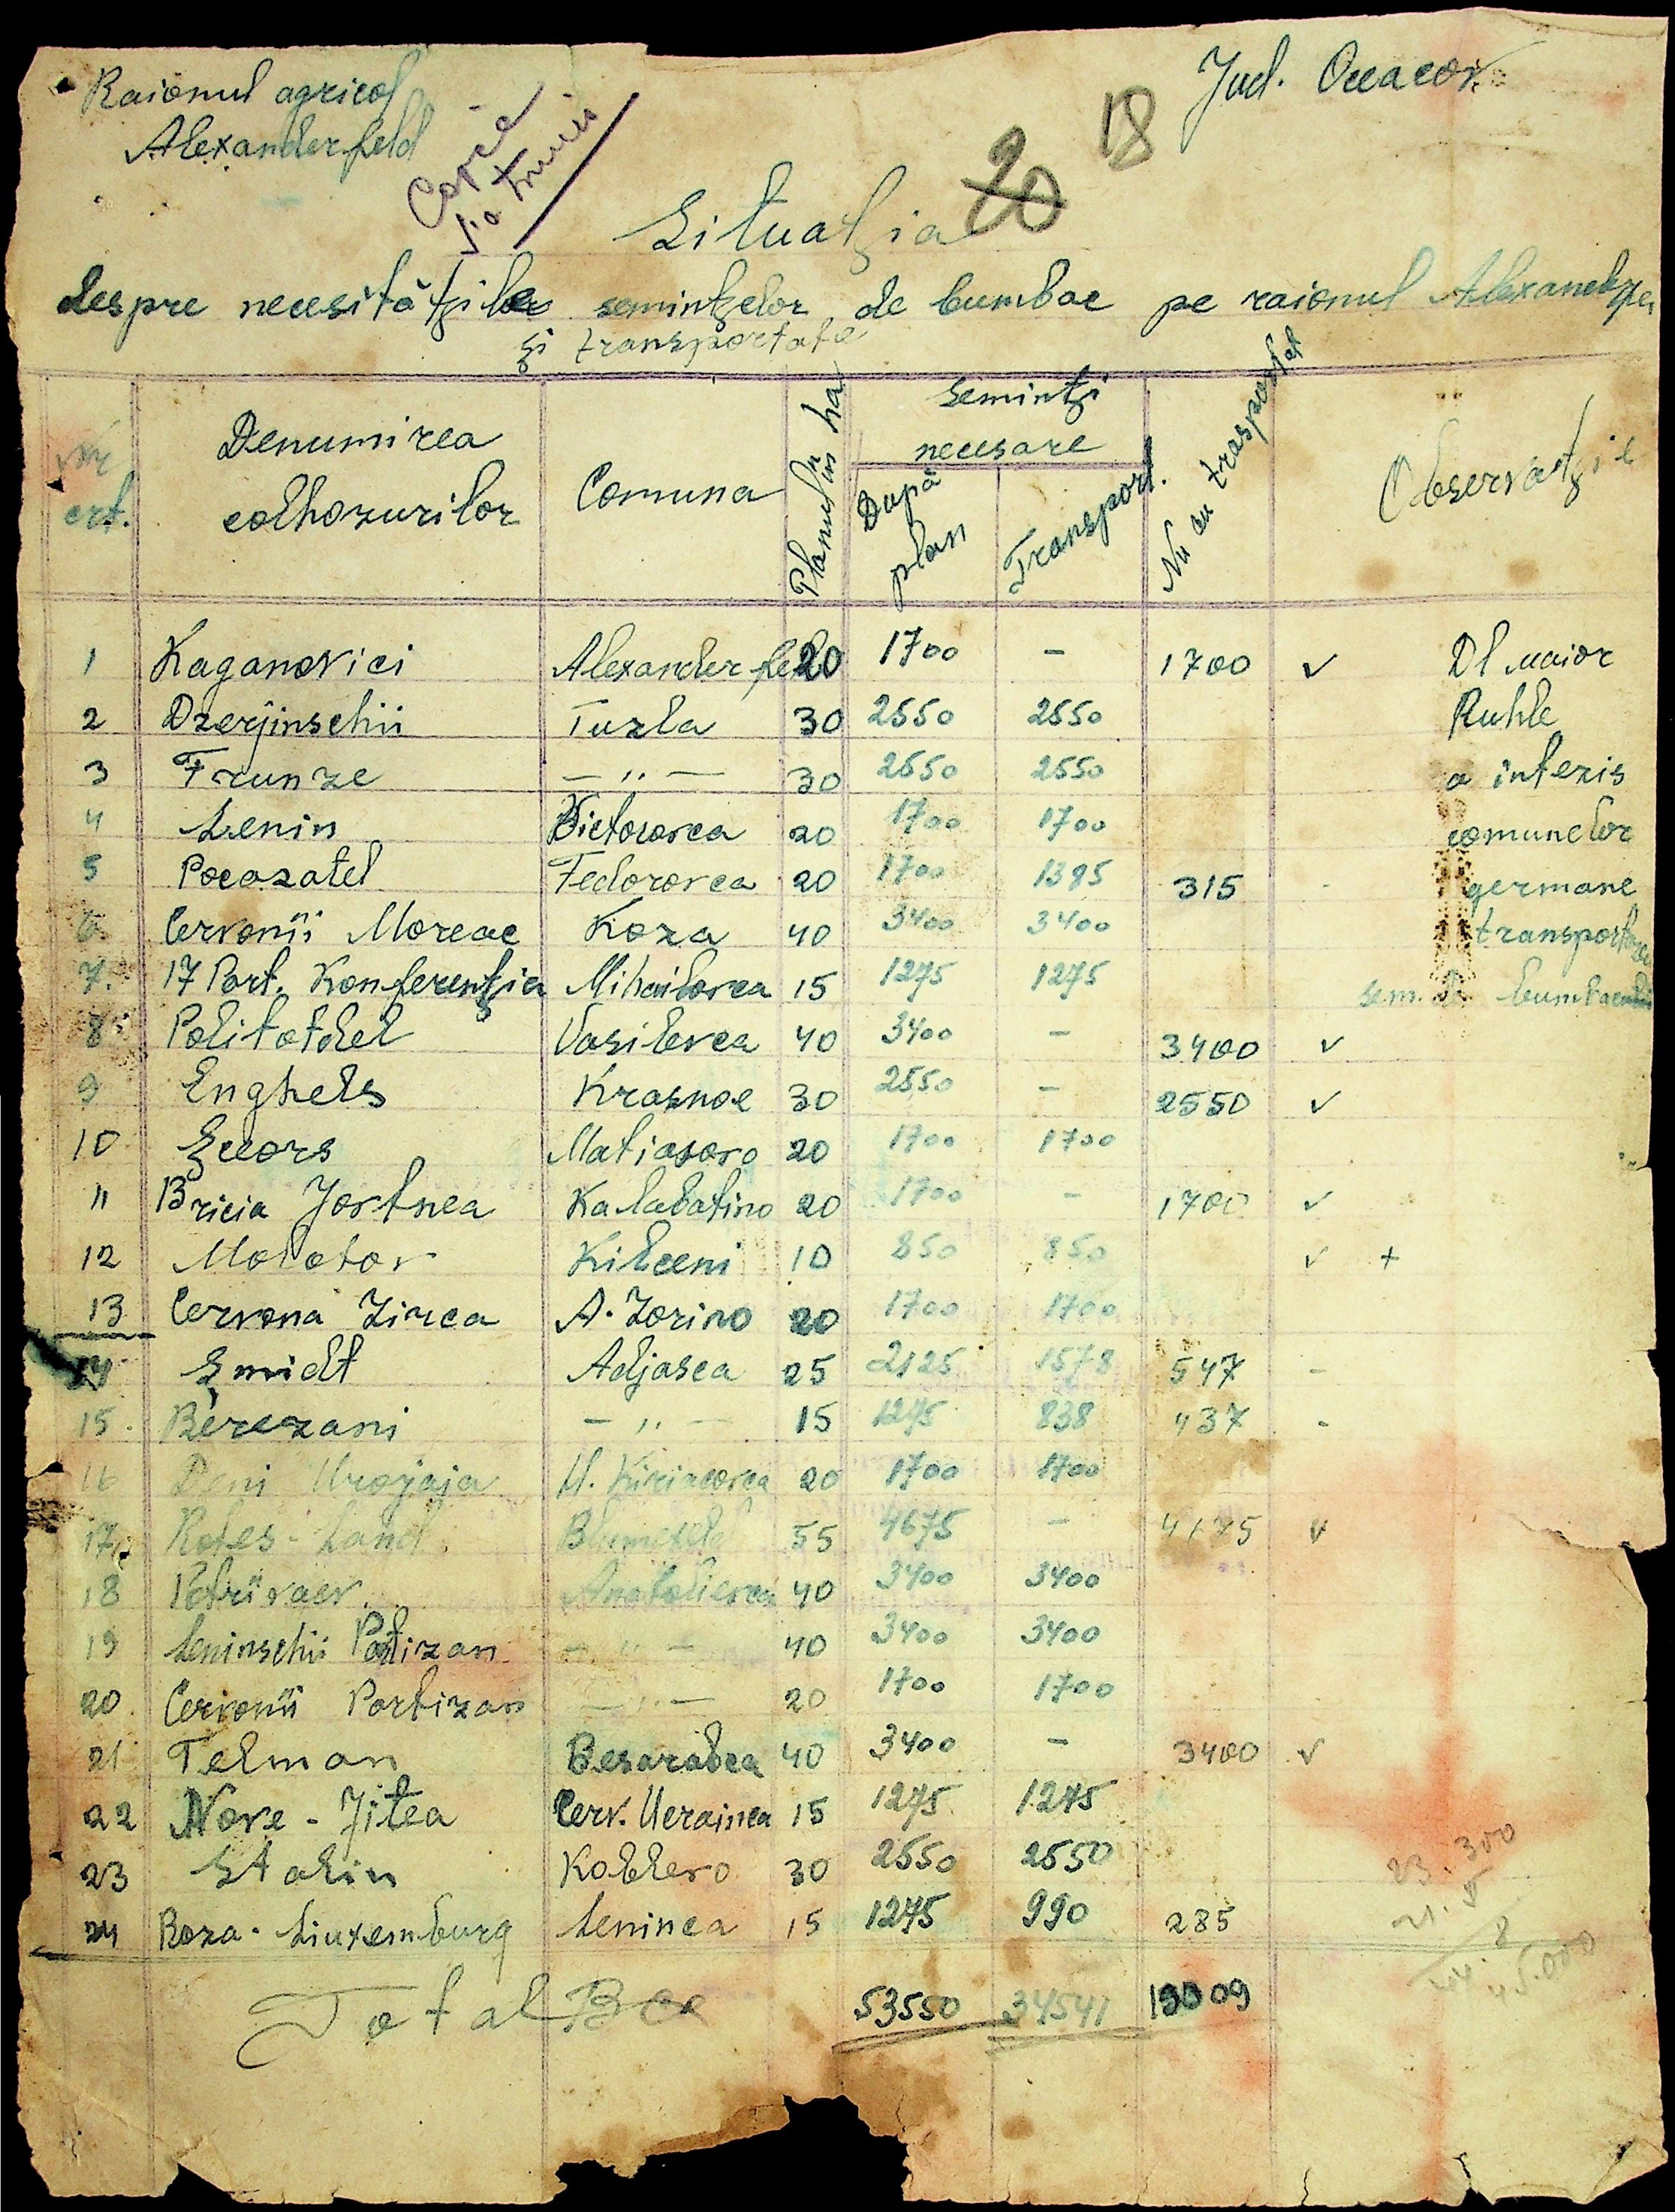 Raionul agricol
Alexanderfeld
Jud. Oceacov
Copie
18
20
Situatzia
despre necesitâtzilor semintzelor de bumbac pe raionul
și transportate
Nr. crt. Denumirea colhozurilor Comuna Planul în ha Semintzi necesare După plan Transport. Nu au trasportat Observatzie
1 Kaganovici Alexanderfeld 20 1700 – 1700 ✓ Dl maior
2 Dzerjinschii Tuzla 30 2550 2550 Ruhle
3 Frunze — " — 30 2550 2550 a interis
4 Lenin Victorovca 20 1700 1700 comunelor
5 Pocazatel Fedorovca 20 1700 1385 315 - germane
6 Cervonii Moreac Koza 40 3400 3400 transportarea
7. 17 Part. Konferentzia Mihailovca 15 1275 1275 sem. bumbacului
8 Politotdel Vasilevca 40 3400 – 3400 ✓
9 Enghels Krasnoe 30 2550 – 2550 ✓
10 Șciors Matiasovo 20 1700 1700
11 Bricia Jovtnea Kalabatino 20 1700 – 1700 ✓
12 Molotov Kilceni 10 850 850 ✓ +
13 Cervona Zirca A. Zorino 20 1700 1700
14 Șmidt Adjasca 25 2125 1578 547 -
15. Berezani — " — 15 1275 838 437 -
16 Deni Urojaia M. Kiriacovca 20 1700 1700
17. Rotes-Land 55 4675 – 4675 ✓
18 Anatolievca 40 3400 3400
19 Leninschii Patizan — " — 40 3400 3400
20. Cervonii Partizan — " — 20 1700 1700
21 Telman Besarabca 40 3400 – 3400 ✓
22 Nove-Jitea Cerv. Ucrainca 15 1275 1275
23 Stalin Koblevo 30 2550 2550
24 Roza-Liuxemburg Leninca 15 1275 990 285
Total 53550 34541 19009
23.300
45.000